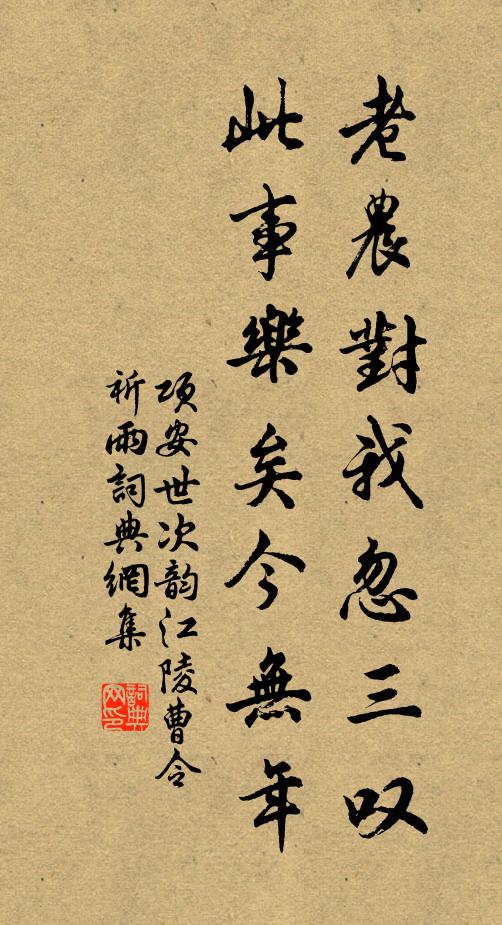 老農對我忽三叹
此事樂矣今無年
项安世次韵江陵曹令
祈雨詞典網集
詞典网印